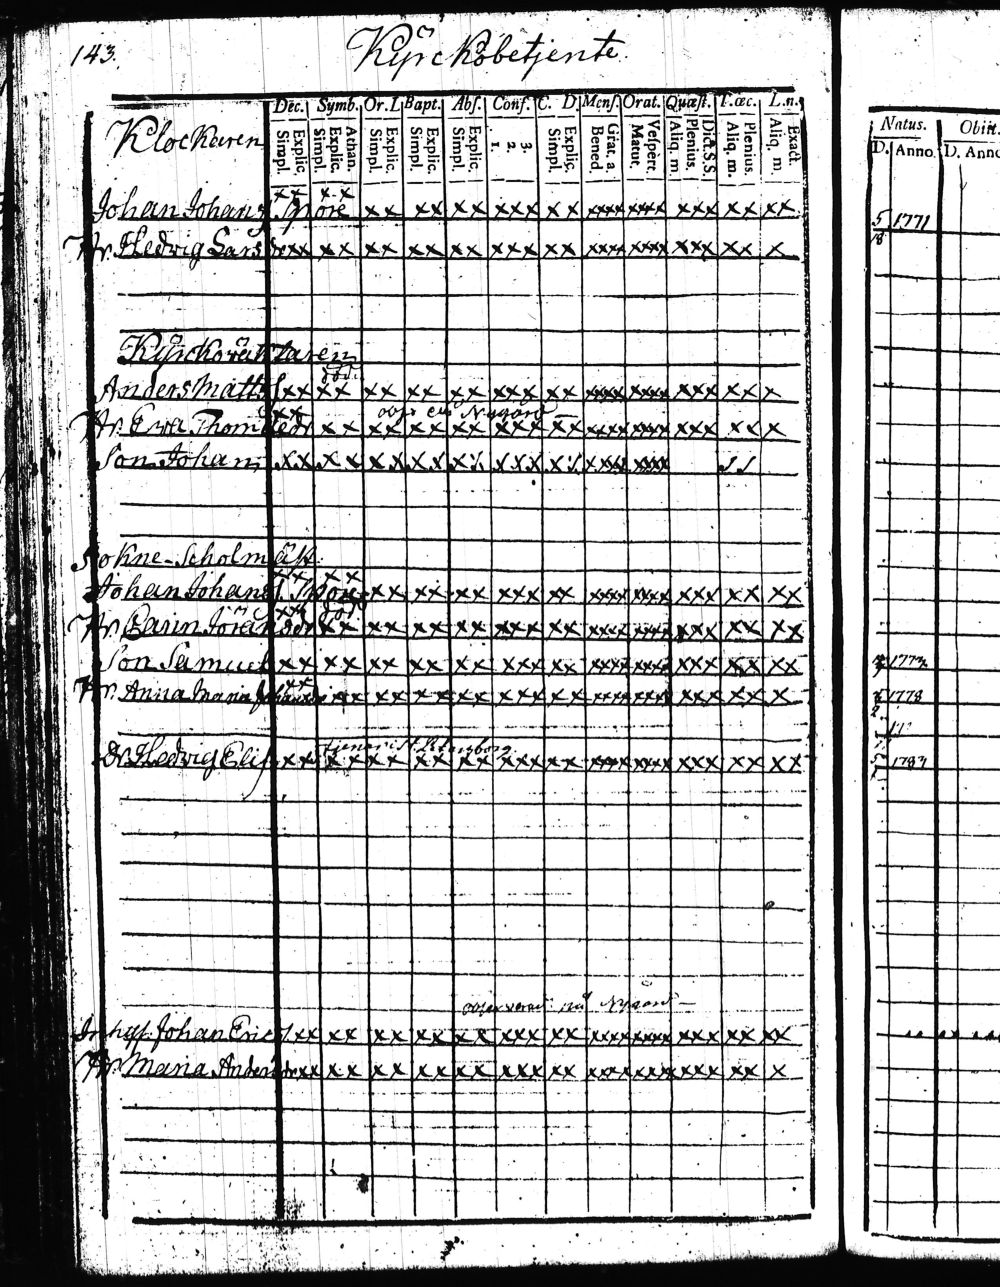 143.
Kyrckobetjente.
Dec. Symb. Or. D. Bapt. Abs. Conf. C. D. Mens. Orat. Quæst. T. œc. L. n.
Simpl. Explic. Simpl. Explic. Athan. Simpl. Explic. Simpl. Explic. Simpl. Explic. 1. 2. 3. Simpl. Explic. Bened. Girat. a. Matut. Vespert. Aliq. m. Plenius. Dict. S. S. Aliq. m. Plenius. Aliq. m. Exact.
Natus. Obiit.
D. Anno. D. Anno
Klockaren
Johan Johans. Spore xx xx xx xx xx xxx xx xxxx xxxx xxx xx xx 5/8 1771
Hr. Hedwig Lars dr xx xx xx xx xx xxx xx xxxx xxxx xxx xx x
Kyrckowäktaren
död.
Anders Matts. xx xx xx xx xx xxx xx xxxx xxxx xxx xx x
obs. Nygård
Hr. Ewa Thom dr xx xx xx xx xx xxx xx xxxx xxxx xxx xx x
Son Johan xx xx xx xx xx xxx xx xxxx xxxx
Sokne-Scholmäst.
Johan Johans. Spore xx xx xx xx xxx xx xxxx xxxx xxx xx xx
död
Hr. Carin Jöran der xx xx xx xx xx xxx xx xxxx xxxx xxx xx xx
Son Samuel xx xx xx xx xx xxx xx xxxx xxxx xxx xx xx 1773
Hr. Anna Maria Johans dr xx xx xx xx xx xxx xx xxxx xxxx xxx xx x 1778
tjenar i St. Petersborg.
Dr. Hedwig Elis. xx xx xx xx xx xxx xx xxxx xxxx xxx xx xx 1783
Nygård
Inhys. Johan Erics. xx xx xx xx xx xxx xx xxxx xxxx xxx xx xx
Hr. Maria Anders dr xx xx xx xx xx xxx xx xxxx xxxx xxx xx x